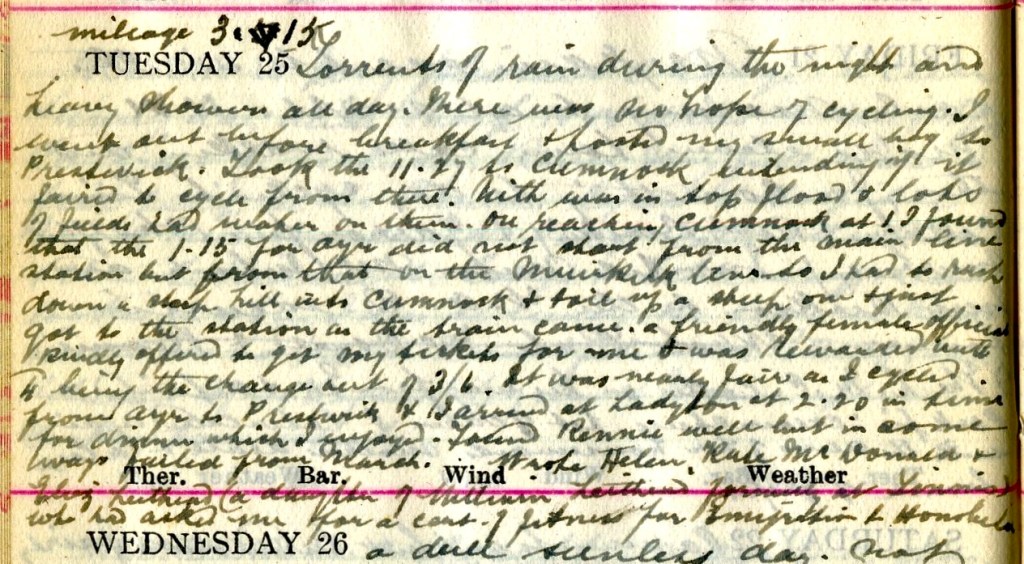 mileage 3. 15
TUESDAY 25 Torrents of rain during the night and
heavy showers all day. There was no hope of cycling. I
went out before breakfast & posted my small bag to
Prestwick. Took the 11.27 to Cumnock intending if it
faired to cycle from there. Nith was in top flood & lots
of fields had water on them. On reaching Cumnock at 1 I found
that the 1-15 for Ayr did not start from the main line
station but from that on the Muirkirk line so I had to rush
down a steep hill into Cumnock & toil up a steep one & just
got to the station as the train came. A friendly female official
kindly offered to get my tickets for me & was rewarded with
being the change out of 3/6. It was nearly fair as I cycled
from Ayr to Prestwick & I arrived at Ladyton at 2.20 in time
for dinner which I enjoyed. Found Rennie well but in some
ways failed from March. Wrote Helen, Kate McDonald &
Ther. Bar. Wind Weather
a daughter of William formerly at
who had asked me for a cert. of fitness for Emigration to Honolulu
WEDNESDAY 26 a dull sunless day. Not